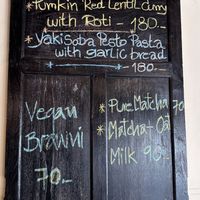 * Pumkin Red Lentil Curry
with Roti - 180.-
* Yakisoba Pesto Pasta
with garlic bread
- 180.-
Vegan
Browni
70.-
* Pure Matcha 70
* Matcha - Oat
Milk 90.-